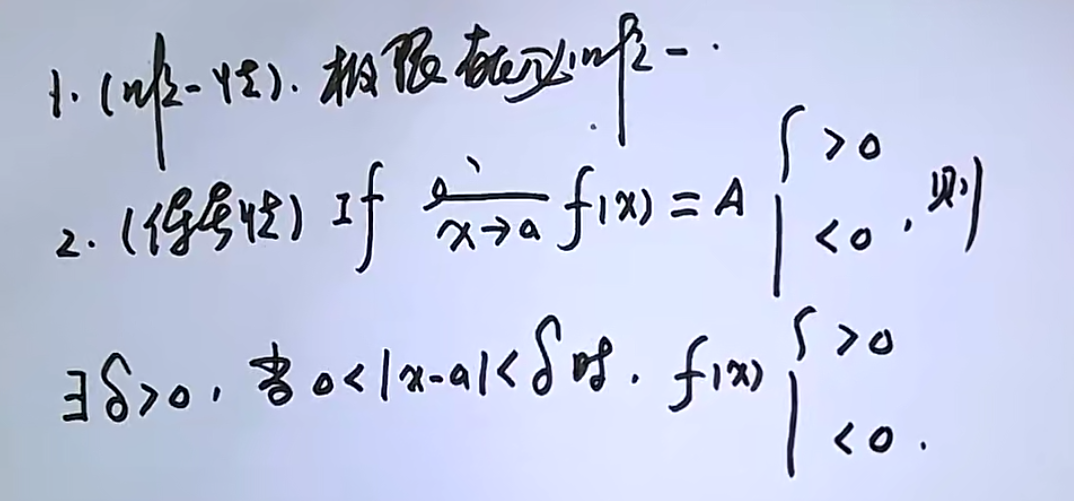 1. (唯一性). 极限存在必唯一.
2. (保号性) If lim x→a f(x) = A { >0 <0 , 则
∃δ>0, 当 0<|x-a|<δ 时. f(x) { >0 <0 .